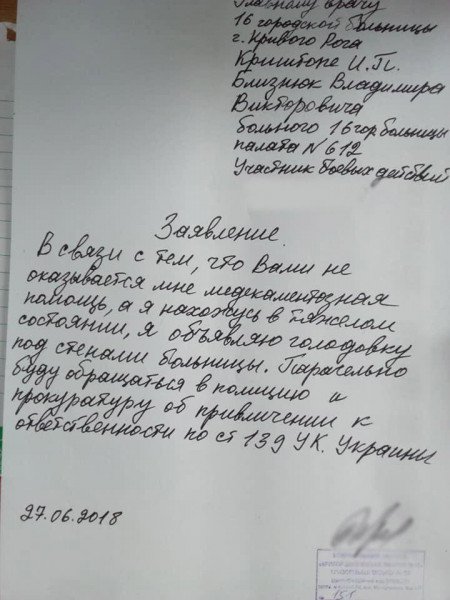 Главному врачу
16 городской больницы
г. Кривого Рога
Криштопе И.П.
Близнюк Владимира
Викторовича
больного 16 гор больницы
палата N 612
Участник боевых действий
Заявление.
В связи с тем, что Вами не
оказывается мне медекаментозная
помощь, а я нахожусь в тяжелом
состоянии, я объявляю голодовку
под стенами больницы. Паралельно
буду обращаться в полицию и
прокуратуру об привличении к
ответственности по ст 139 УК. Украины
27.06.2018